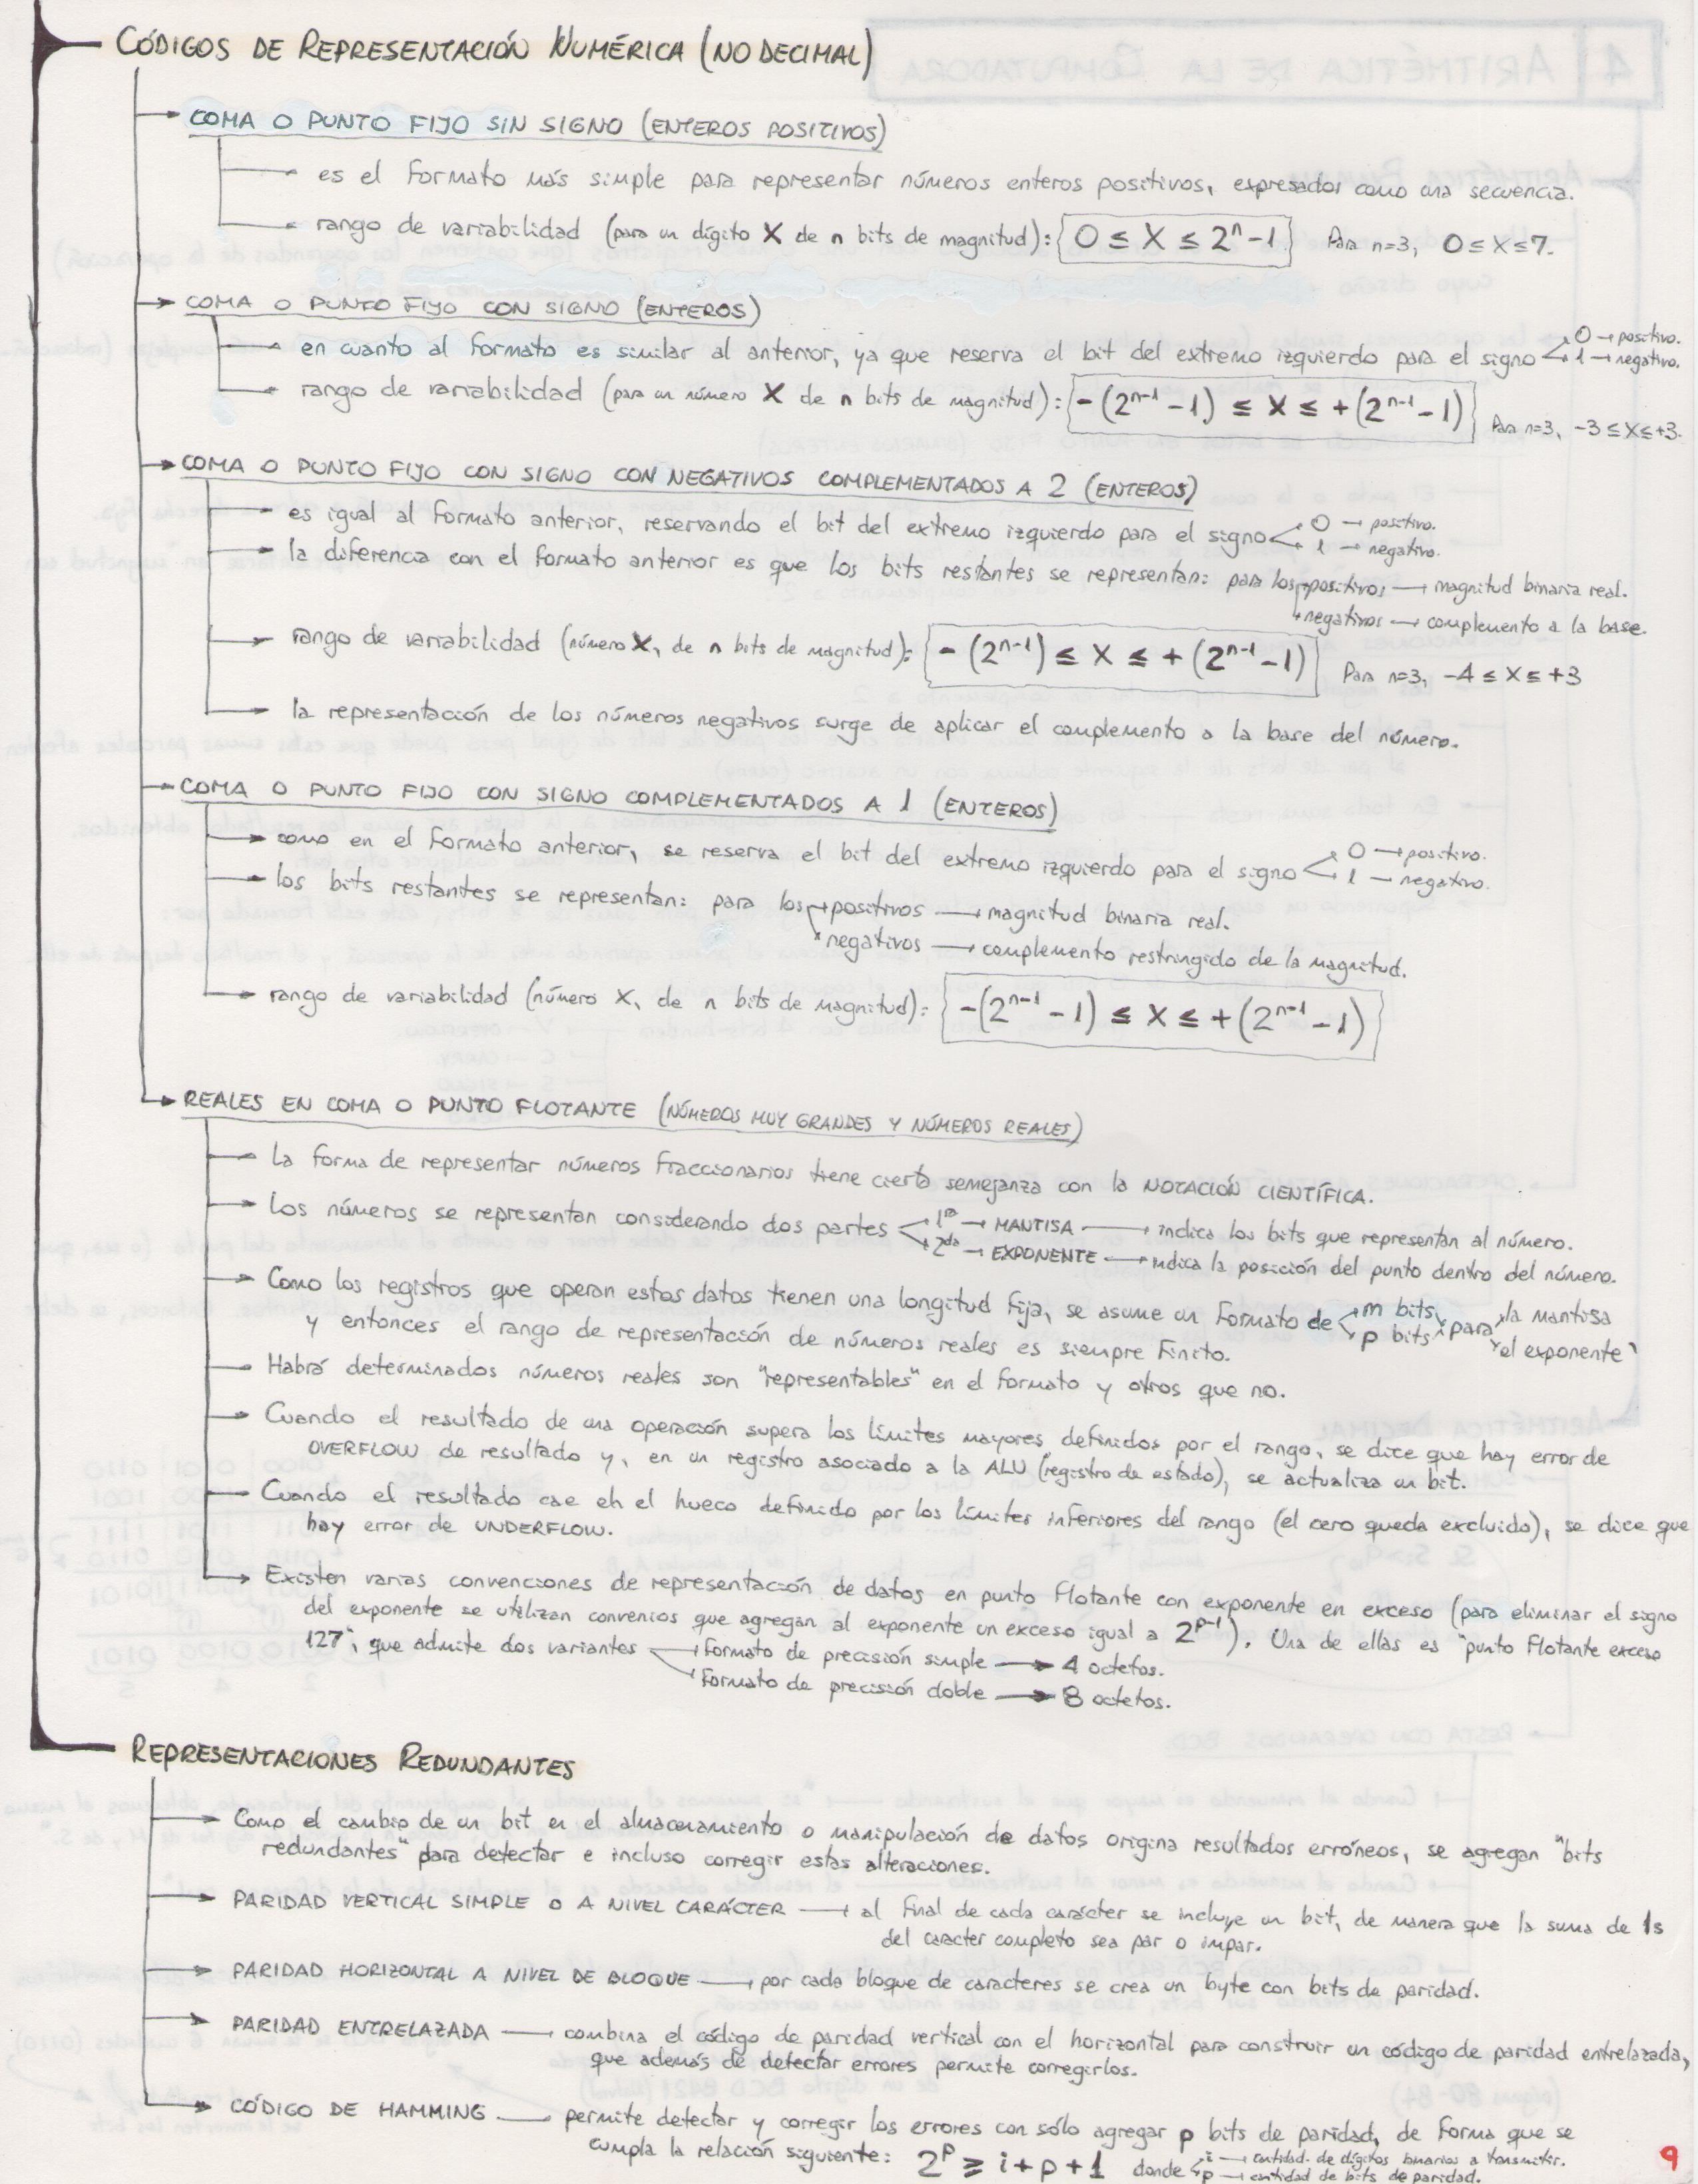 CÓDIGOS DE REPRESENTACIÓN NUMÉRICA (NO DECIMAL)
COMA O PUNTO FIJO SIN SIGNO (ENTEROS POSITIVOS)
es el formato más simple para representar números enteros positivos, expresados como una secuencia.
rango de variabilidad (para un dígito X de n bits de magnitud): 0 ≤ X ≤ 2ⁿ-1 Para n=3, 0 ≤ X ≤ 7.
COMA O PUNTO FIJO CON SIGNO (ENTEROS)
en cuanto al formato es similar al anterior, ya que reserva el bit del extremo izquierdo para el signo 0 → positivo.
1 → negativo.
rango de variabilidad (para un número X de n bits de magnitud): -(2ⁿ⁻¹ - 1) ≤ X ≤ +(2ⁿ⁻¹ - 1) Para n=3, -3 ≤ X ≤ +3.
COMA O PUNTO FIJO CON SIGNO CON NEGATIVOS COMPLEMENTADOS A 2 (ENTEROS)
es igual al formato anterior, reservando el bit del extremo izquierdo para el signo 0 → positivo.
1 → negativo.
la diferencia con el formato anterior es que los bits restantes se representan: para los positivos → magnitud binaria real.
negativos → complemento a la base.
rango de variabilidad (número X, de n bits de magnitud): -(2ⁿ⁻¹) ≤ X ≤ +(2ⁿ⁻¹ - 1) Para n=3, -4 ≤ X ≤ +3
la representación de los números negativos surge de aplicar el complemento a la base del número.
COMA O PUNTO FIJO CON SIGNO COMPLEMENTADOS A 1 (ENTEROS)
como en el formato anterior, se reserva el bit del extremo izquierdo para el signo 0 → positivo.
1 → negativo.
los bits restantes se representan: para los positivos → magnitud binaria real.
negativos → complemento restringido de la magnitud.
rango de variabilidad (número X, de n bits de magnitud): -(2ⁿ⁻¹ - 1) ≤ X ≤ +(2ⁿ⁻¹ - 1)
REALES EN COMA O PUNTO FLOTANTE (NÚMEROS MUY GRANDES Y NÚMEROS REALES)
La forma de representar números fraccionarios tiene cierta semejanza con la NOTACIÓN CIENTÍFICA.
Los números se representan considerando dos partes 1ra → MANTISA → indica los bits que representan al número.
2da → EXPONENTE → indica la posición del punto dentro del número.
Como los registros que operan estos datos tienen una longitud fija, se asume un formato de m bits para la mantisa
y entonces el rango de representación de números reales es siempre finito. p bits el exponente
Habrá determinados números reales son "representables" en el formato y otros que no.
Cuando el resultado de una operación supera los límites mayores definidos por el rango, se dice que hay error de
OVERFLOW de resultado y, en un registro asociado a la ALU (registro de estado), se actualiza un bit.
Cuando el resultado cae en el hueco definido por los límites inferiores del rango (el cero queda excluido), se dice que
hay error de UNDERFLOW.
Existen varias convenciones de representación de datos en punto flotante con exponente en exceso (para eliminar el signo
del exponente se utilizan convenios que agregan al exponente un exceso igual a 2ᵖ⁻¹). Una de ellas es "punto flotante exceso
127", que admite dos variantes → formato de precisión simple → 4 octetos.
formato de precisión doble → 8 octetos.
REPRESENTACIONES REDUNDANTES
Como el cambio de un bit en el almacenamiento o manipulación de datos origina resultados erróneos, se agregan "bits
redundantes" para detectar e incluso corregir estas alteraciones.
PARIDAD VERTICAL SIMPLE O A NIVEL CARÁCTER → al final de cada carácter se incluye un bit, de manera que la suma de 1s
del caracter completo sea par o impar.
PARIDAD HORIZONTAL A NIVEL DE BLOQUE → por cada bloque de caracteres se crea un byte con bits de paridad.
PARIDAD ENTRELAZADA → combina el código de paridad vertical con el horizontal para construir un código de paridad entrelazada,
que además de detectar errores permite corregirlos.
CÓDIGO DE HAMMING → permite detectar y corregir los errores con sólo agregar p bits de paridad, de forma que se
cumpla la relación siguiente: 2ᵖ ≥ i + p + 1 donde i → cantidad de dígitos binarios a transmitir.
p → cantidad de bits de paridad.
9